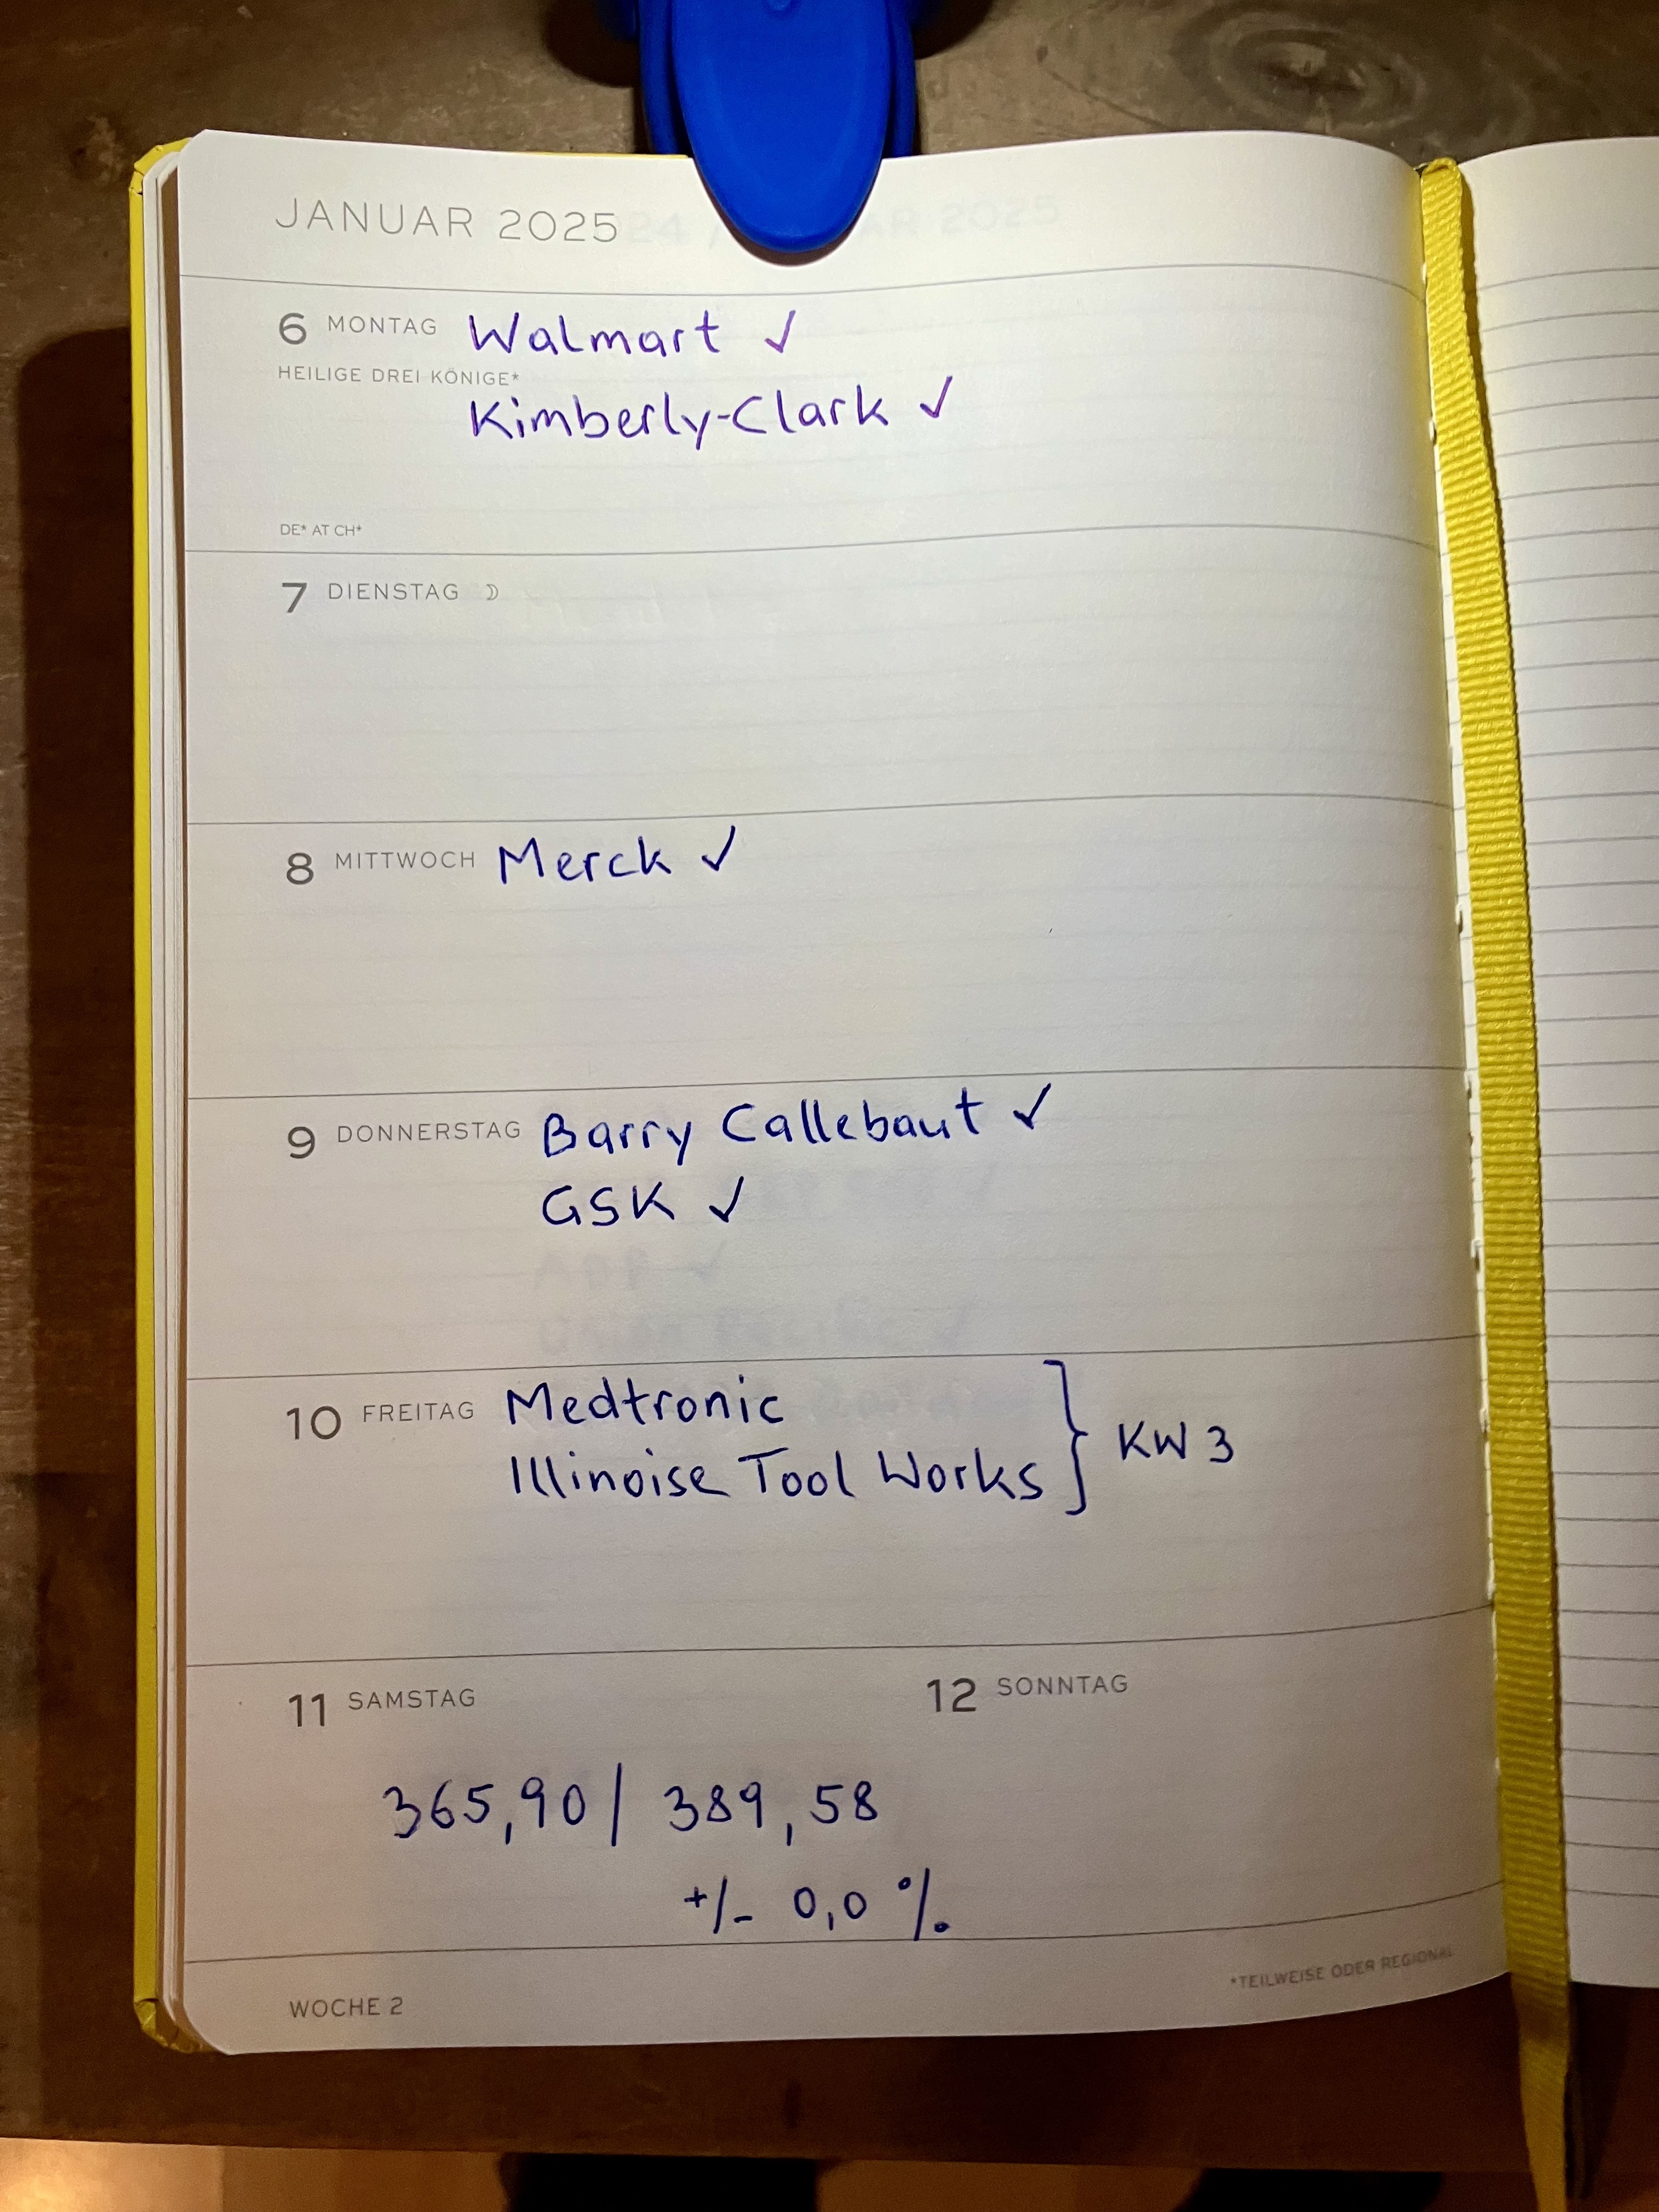 JANUAR 2025
6 MONTAG Walmart ✓
HEILIGE DREI KÖNIGE*
Kimberly-Clark ✓
DE* AT CH*
7 DIENSTAG ☽
8 MITTWOCH Merck ✓
9 DONNERSTAG Barry Callebaut ✓
GSK ✓
10 FREITAG Medtronic
Illinoise Tool Works } KW 3
11 SAMSTAG
12 SONNTAG
365,90 / 389,58
+/- 0,0 %
*TEILWEISE ODER REGIONAL
WOCHE 2